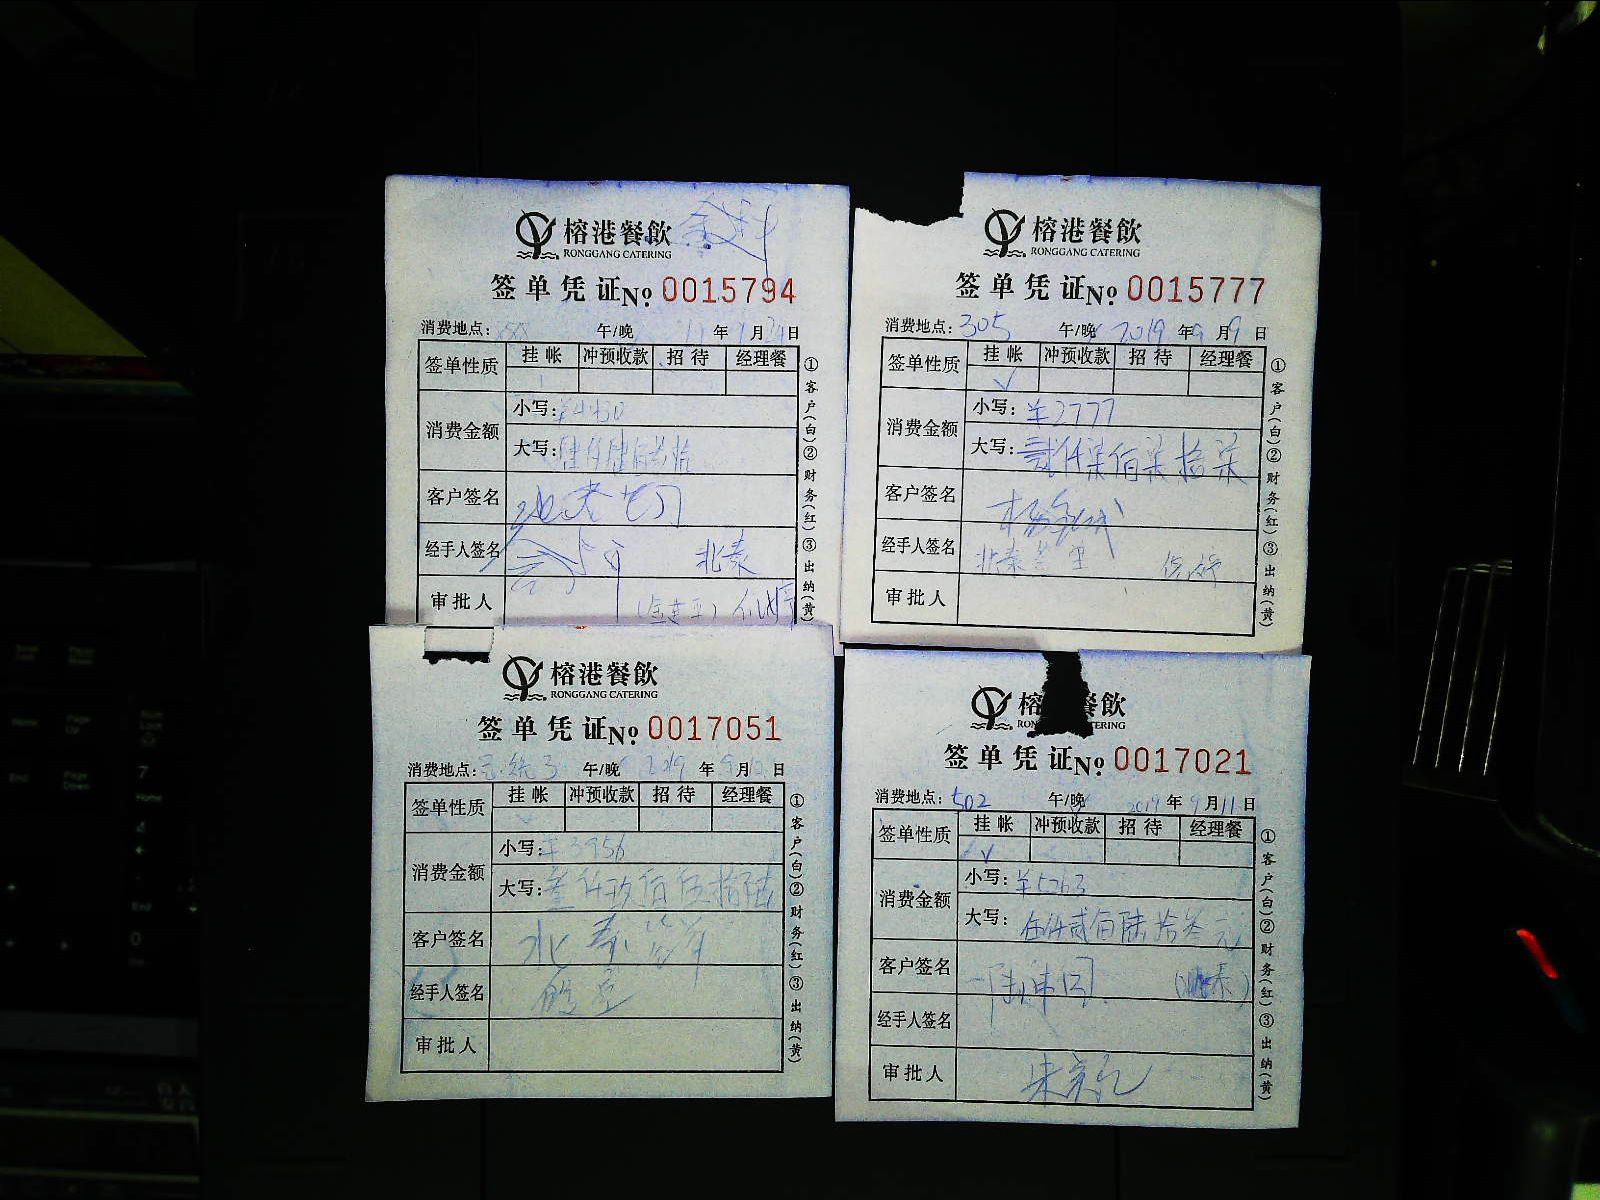 榕港餐飲
RONGGANG CATERING
签单凭证No. 0015794
消费地点: 午/晚 年 月 日
签单性质 挂帐 冲预收款 招待 经理餐
消费金额
小写:
大写:
客户签名
经手人签名 北泰
审批人
①客户(白)②财务(红)③出纳(黄)
榕港餐飲
RONGGANG CATERING
签单凭证No. 0015777
消费地点: 305 午/晚 2019 年 9 月 9 日
签单性质 挂帐 冲预收款 招待 经理餐
√
消费金额
小写: ¥2777
大写: 贰仟柒佰柒拾柒
客户签名
经手人签名 北泰
审批人
①客户(白)②财务(红)③出纳(黄)
榕港餐飲
RONGGANG CATERING
签单凭证No. 0017051
消费地点: 午/晚 2019 年 9 月 日
签单性质 挂帐 冲预收款 招待 经理餐
消费金额
小写: ¥3956
大写: 叁仟玖佰伍拾陆
客户签名 北泰
经手人签名
审批人
①客户(白)②财务(红)③出纳(黄)
榕 餐飲
RON ERING
签单凭证No. 0017021
消费地点: 502 午/晚 2019 年 9 月 11 日
签单性质 挂帐 冲预收款 招待 经理餐
√
消费金额
小写: ¥5263
大写: 伍仟贰佰陆拾叁元
客户签名
经手人签名
审批人
①客户(白)②财务(红)③出纳(黄)